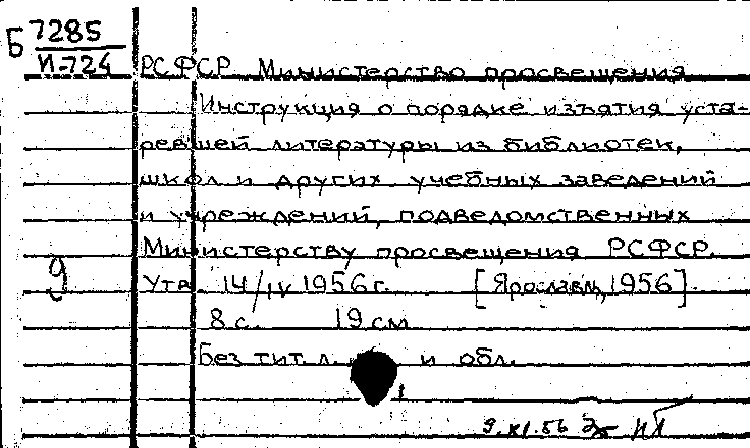 Б 7285
И-724
РСФСР. Министерство просвещения
Инструкция о порядке изъятия уста-
ревшей литературы из библиотек,
школ и других учебных заведений
и учреждений, подведомственных
Министерству просвещения РСФСР.
Утв. 14/IV 1956 г. [Ярославль, 1956].
8 с. 19 см
Без тит. л. и обл.
9.XI.56